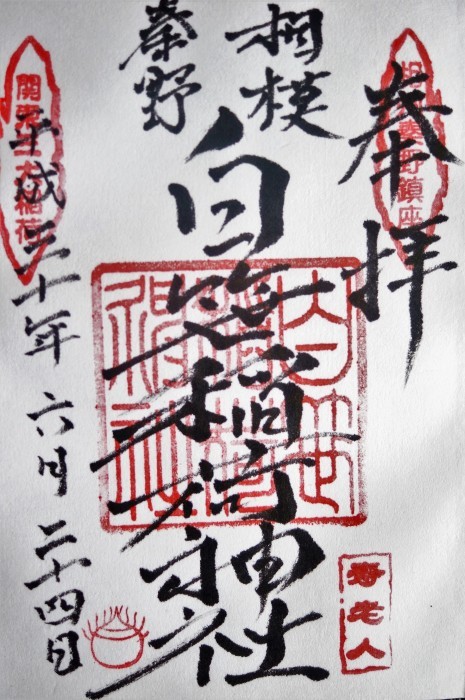 奉拝
相模
秦野
白笹稲荷神社
平成三十年六月二十四日
関東三大稲荷
秦野鎮座
寿老人